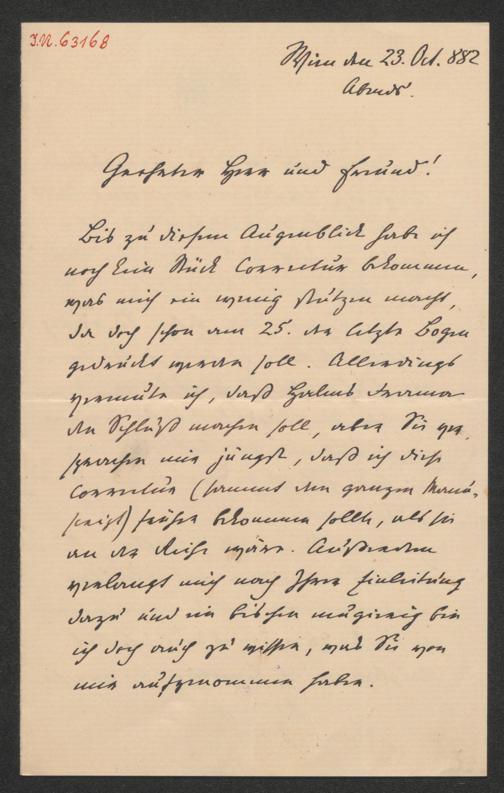 I.N. 63168
Wien den 23. Oct. 882
Abends.
Geehrter Herr und Freund!
Bis zu diesem Augenblick habe ich
noch kein Stück Correctur bekommen,
was mich ein wenig stutzen macht,
da doch schon am 25. der letzte Bogen
gedruckt werden soll. Allerdings
vermute ich, daß Halms Drama
den Schluß machen soll, aber Sie ver-
sprachen mir jüngst, daß ich diese
Correctur (sammt dem ganzen Manu-
script) früher bekommen sollte, als sie
an der Reihe wäre. Außerdem
verlangt mich nach Ihrer Einleitung
dazu und ein bischen neugierig bin
ich doch auch zu wissen, was Sie von
mir aufgenommen haben.